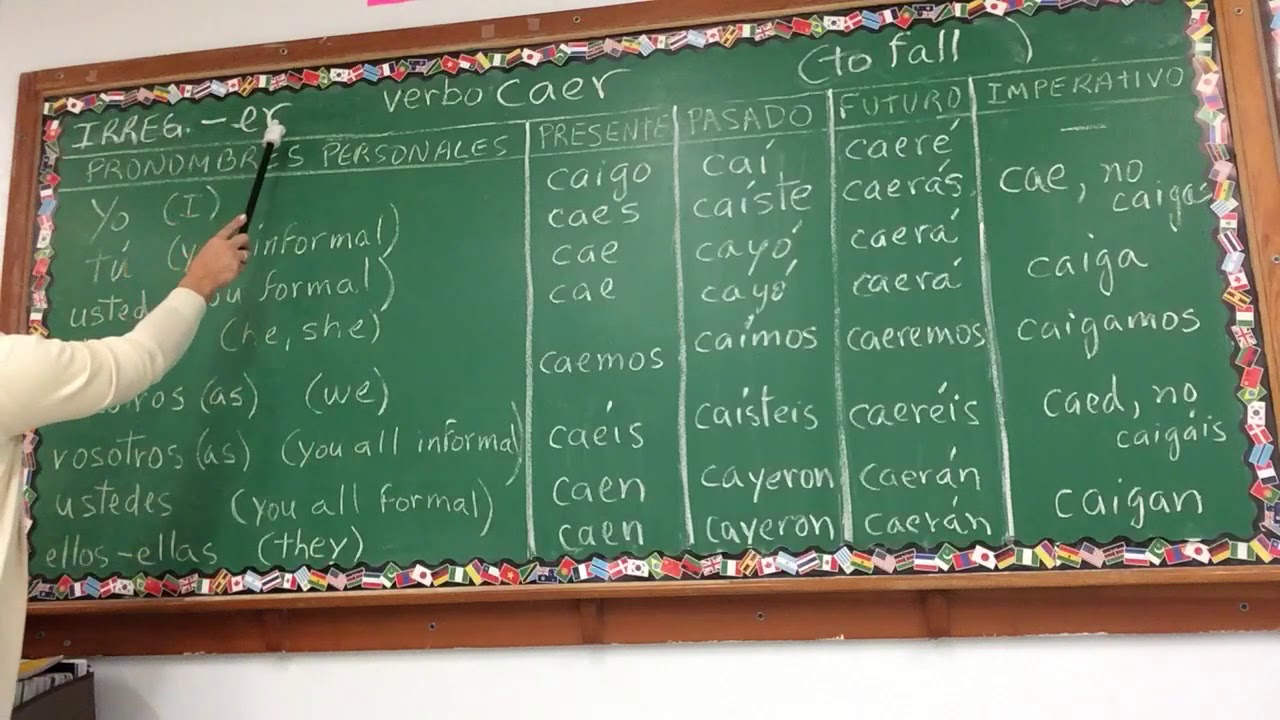 verbo caer (to fall )
IRREG. -er
PRONOMBRES PERSONALES PRESENTE PASADO FUTURO IMPERATIVO
yo (I) caigo caí caeré —
tú informal) caes caíste caerás cae, no caigas
formal) cae cayó caerá caiga
(he, she) cae cayó caerá
(as) (we) caemos caímos caeremos caigamos
vosotros (as) (you all informal) caéis caísteis caeréis caed, no caigáis
ustedes (you all formal) caen cayeron caerán caigan
ellos-ellas (they) caen cayeron caerán